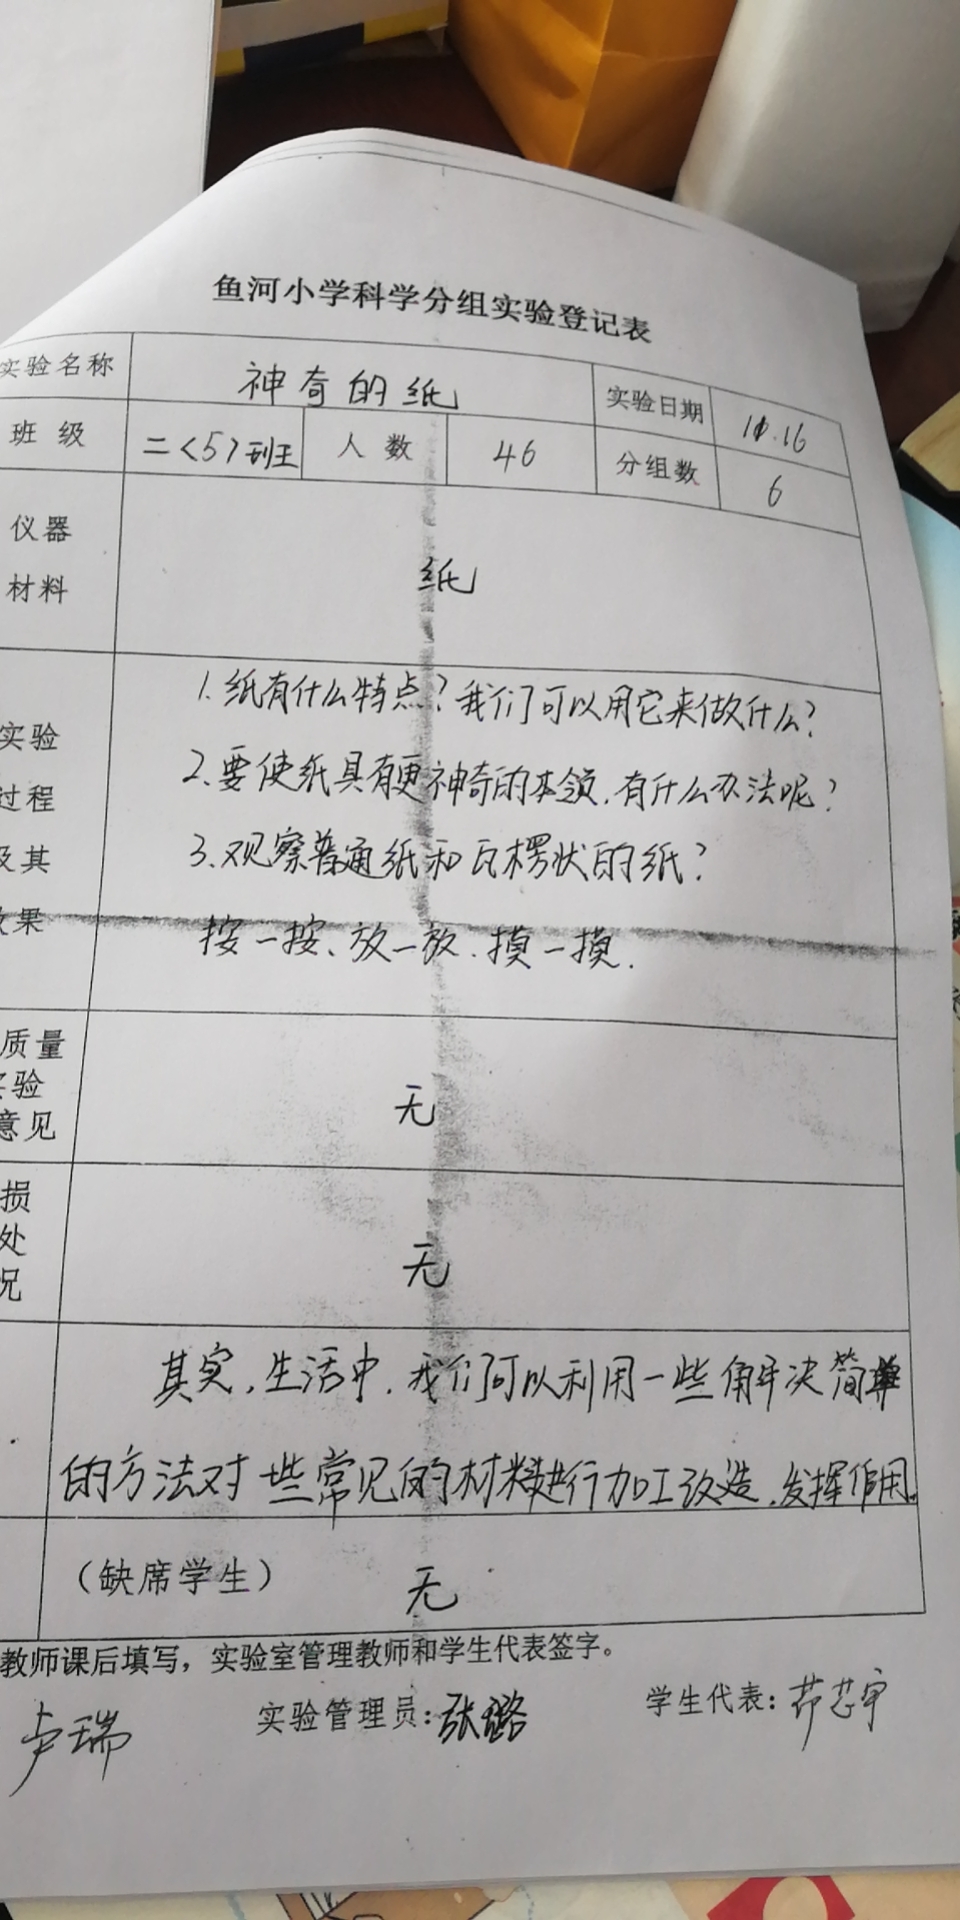 鱼河小学科学分组实验登记表
实验名称 神奇的纸 实验日期 10.16
班 级 二<5>班 人 数 46 分组数 6
仪器
材料
纸
1.纸有什么特点?我们可以用它来做什么?
实验
2.要使纸具有更神奇的本领,有什么办法呢?
过程
3.观察普通纸和瓦楞状的纸?
及其
效果
按一按、放一放.摸一摸.
质量
实验
意见
无
损
处
况
无
其实,生活中,我们可以利用一些解决简单
的方法对一些常见的材料进行加工改造,发挥作用.
(缺席学生) 无
教师课后填写,实验室管理教师和学生代表签字。
卢瑞 实验管理员:张璐 学生代表: